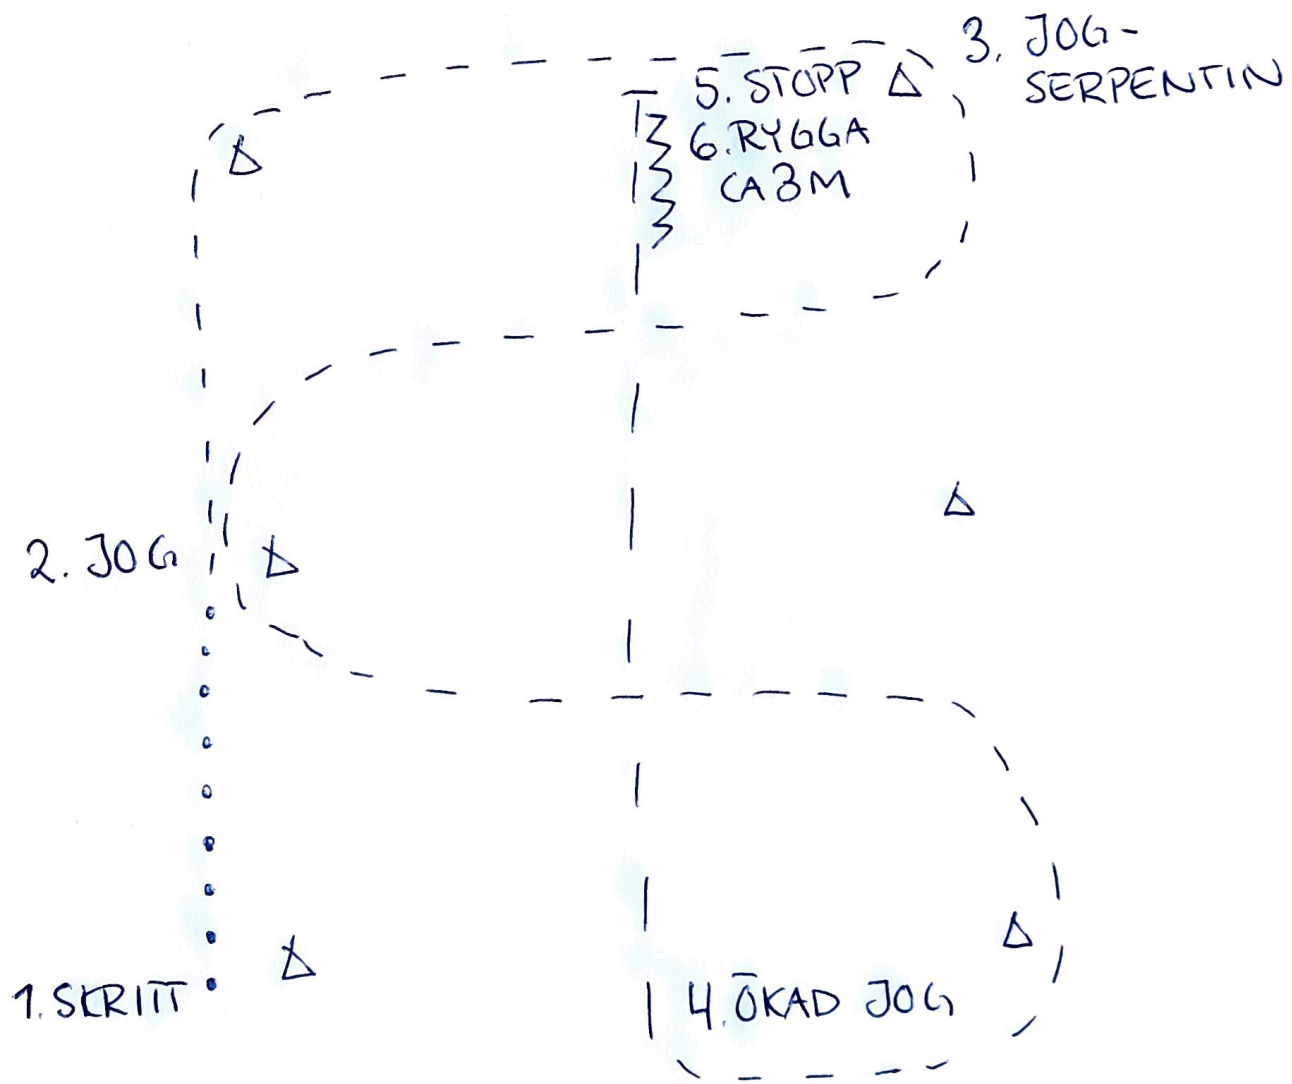 3. JOG-
SERPENTIN
5. STOPP
6. RYGGA
CA 3M
2. JOG
1. SKRITT
4. ÖKAD JOG